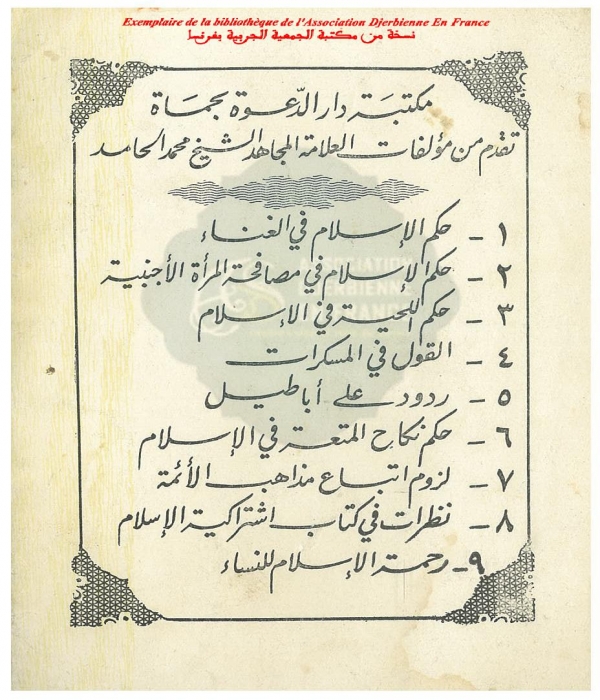 Exemplaire de la bibliothèque de l'Association Djerbienne En France
نسخة من مكتبة الجمعية الجربية بفرنسا
مكتبة دار الدعوة بحماة
تقدم من مؤلفات العلامة المجاهد الشيخ محمد الحامد
١ - حكم الإسلام في الغناء
٢ - حكم الإسلام في مصافحة المرأة الأجنبية
٣ - حكم اللحية في الإسلام
٤ - القول في المسكرات
٥ - ردود على أباطيل
٦ - حكم نكاح المتعة في الإسلام
٧ - لزوم اتباع مذاهب الأئمة
٨ - نظرات في كتاب اشتراكية الإسلام
٩ - رحمة الإسلام للنساء
ASSOCIATION
DJERBIENNE